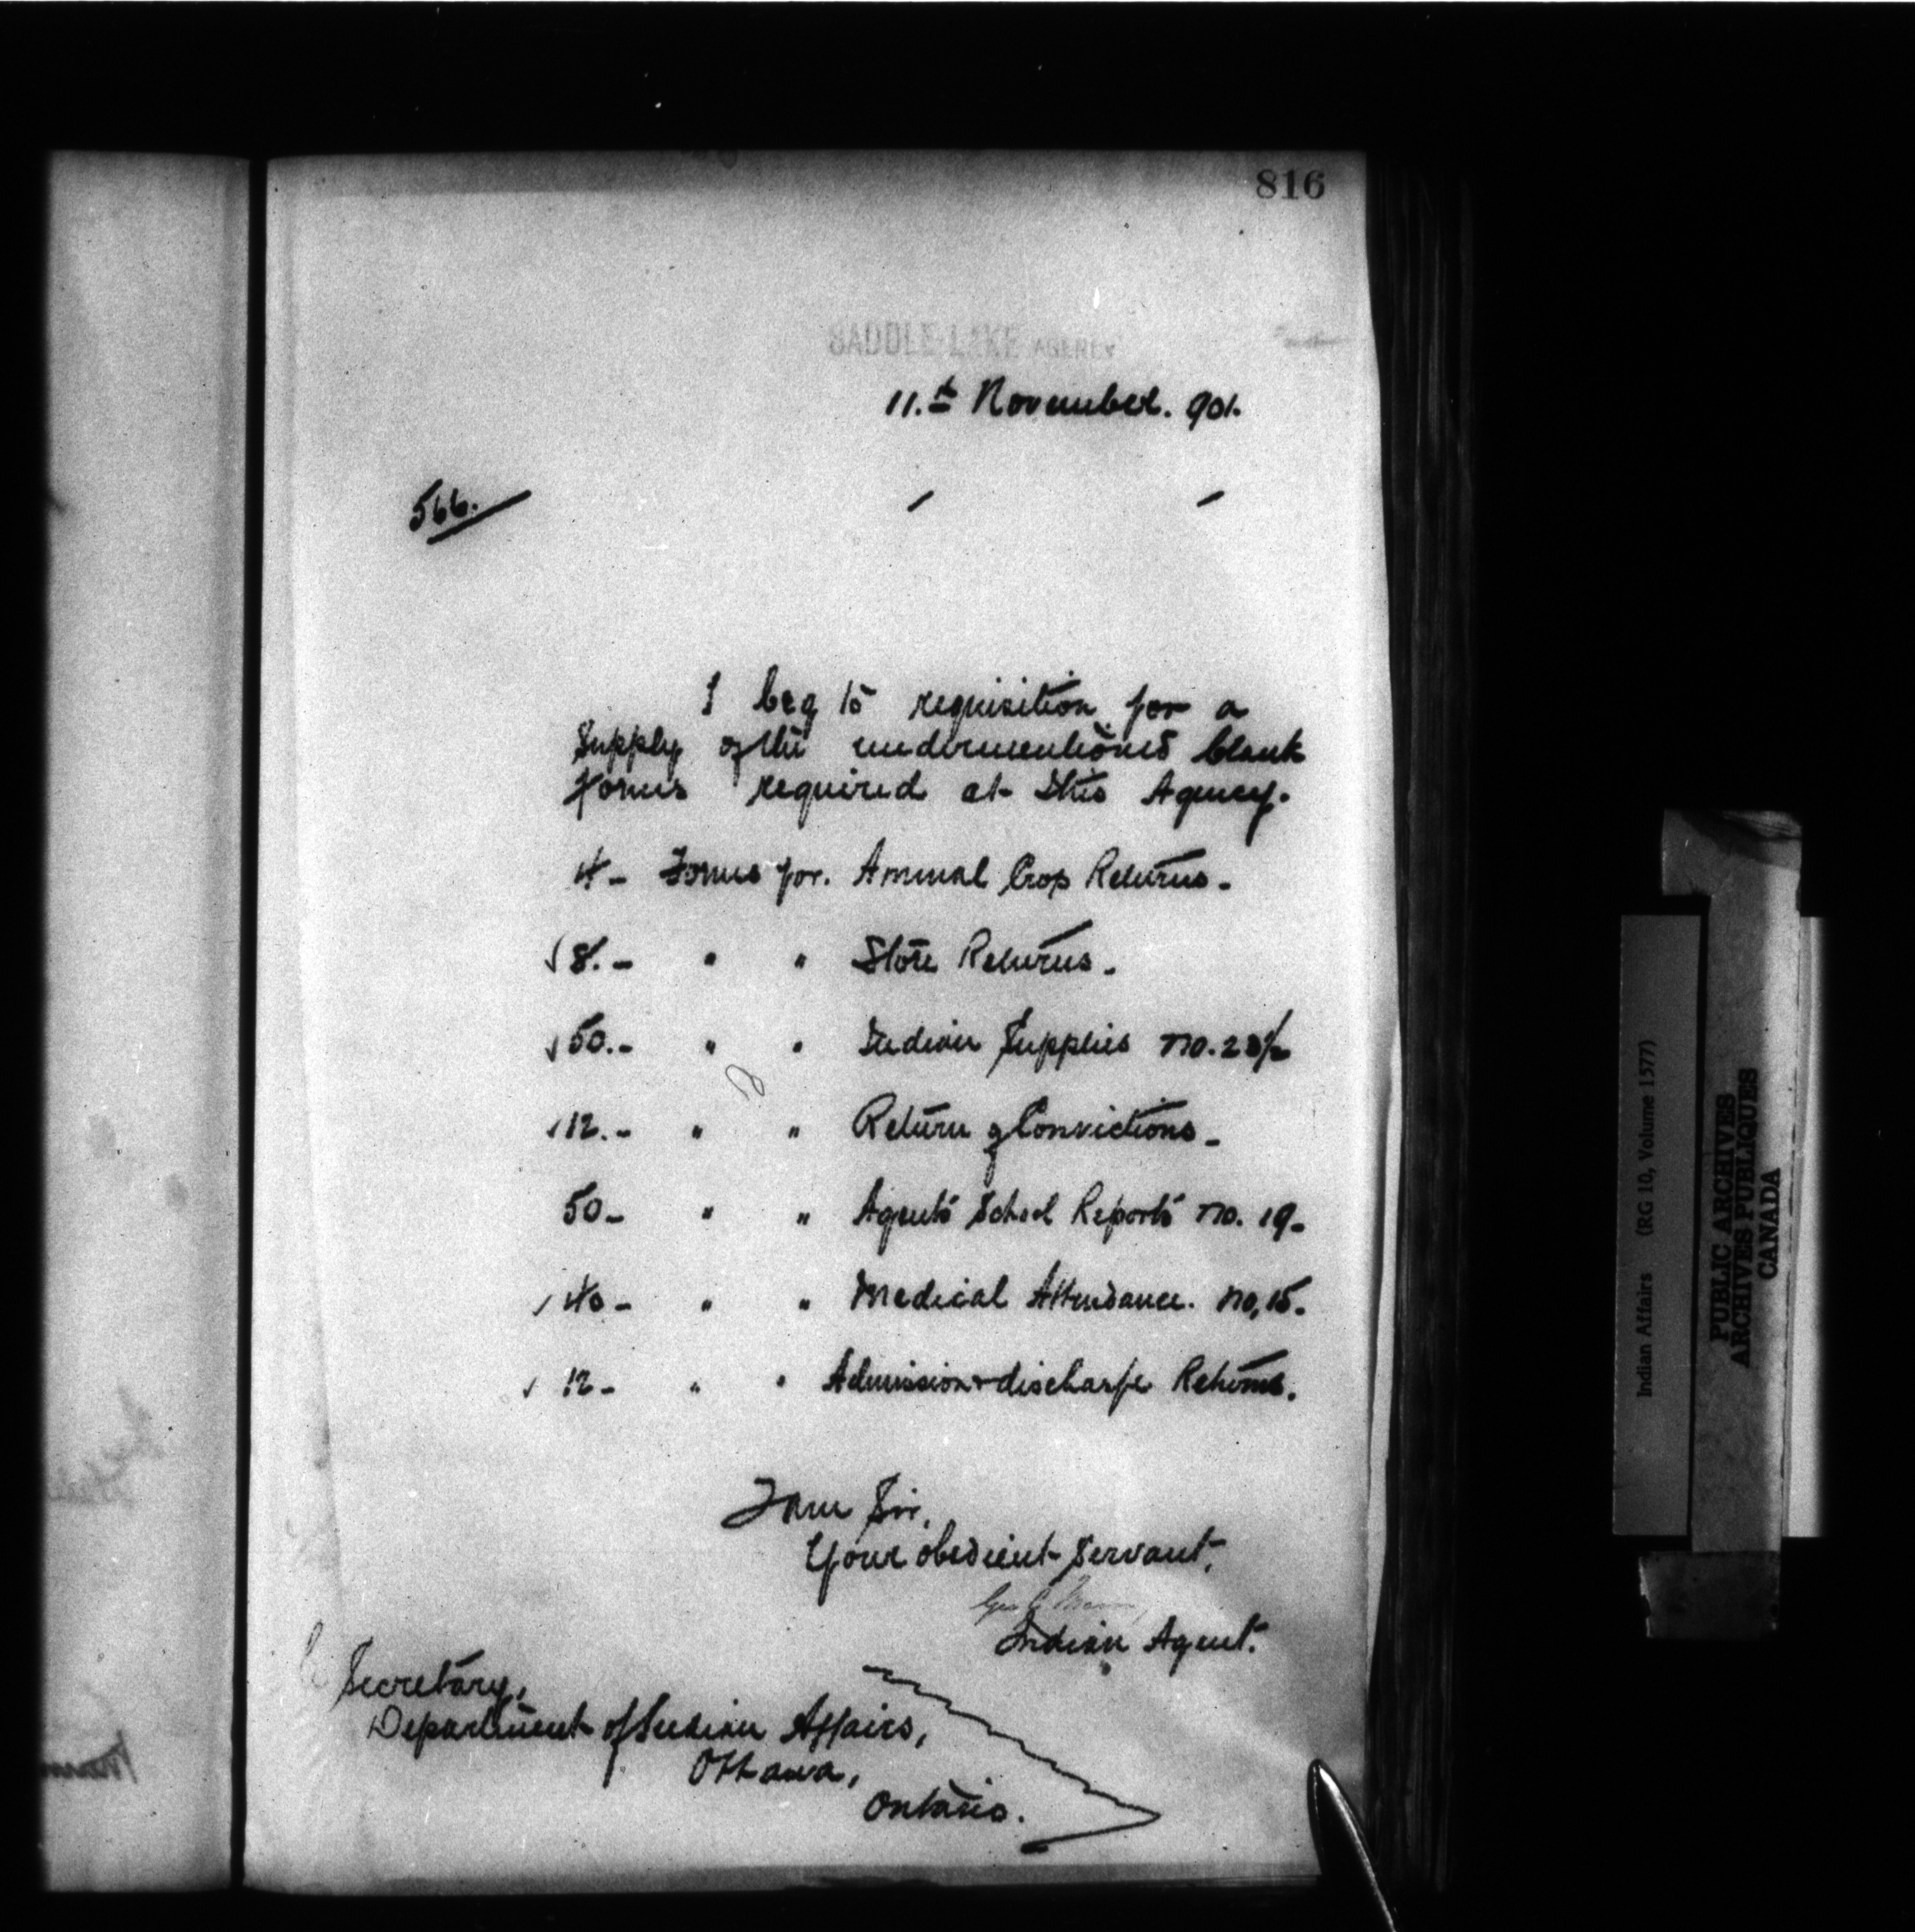 816
SADDLE LAKE AGENCY
11.th November. 901.
566.
I beg to requisition for a
Supply of the undermentioned blank
forms required at this Agency.
4 - Forms for. Annual Crop Returns -
√ 8. - " " Store Returns -
√ 50. - " " Indian Supplies No. 23½
√ 12. - " " Return of Convictions -
50 - " " Agents School Reports No. 19 -
√ 40 - " " Medical Attendance. No, 15.
√ 12 - " " Admission & discharge Returns.
I am Sir,
Your obedient Servant,
Indian Agent.
Secretary,
Department of Indian Affairs,
Ottawa,
Ontario.
Indian Affairs (RG 10, Volume 1577)
PUBLIC ARCHIVES
ARCHIVES PUBLIQUES
CANADA